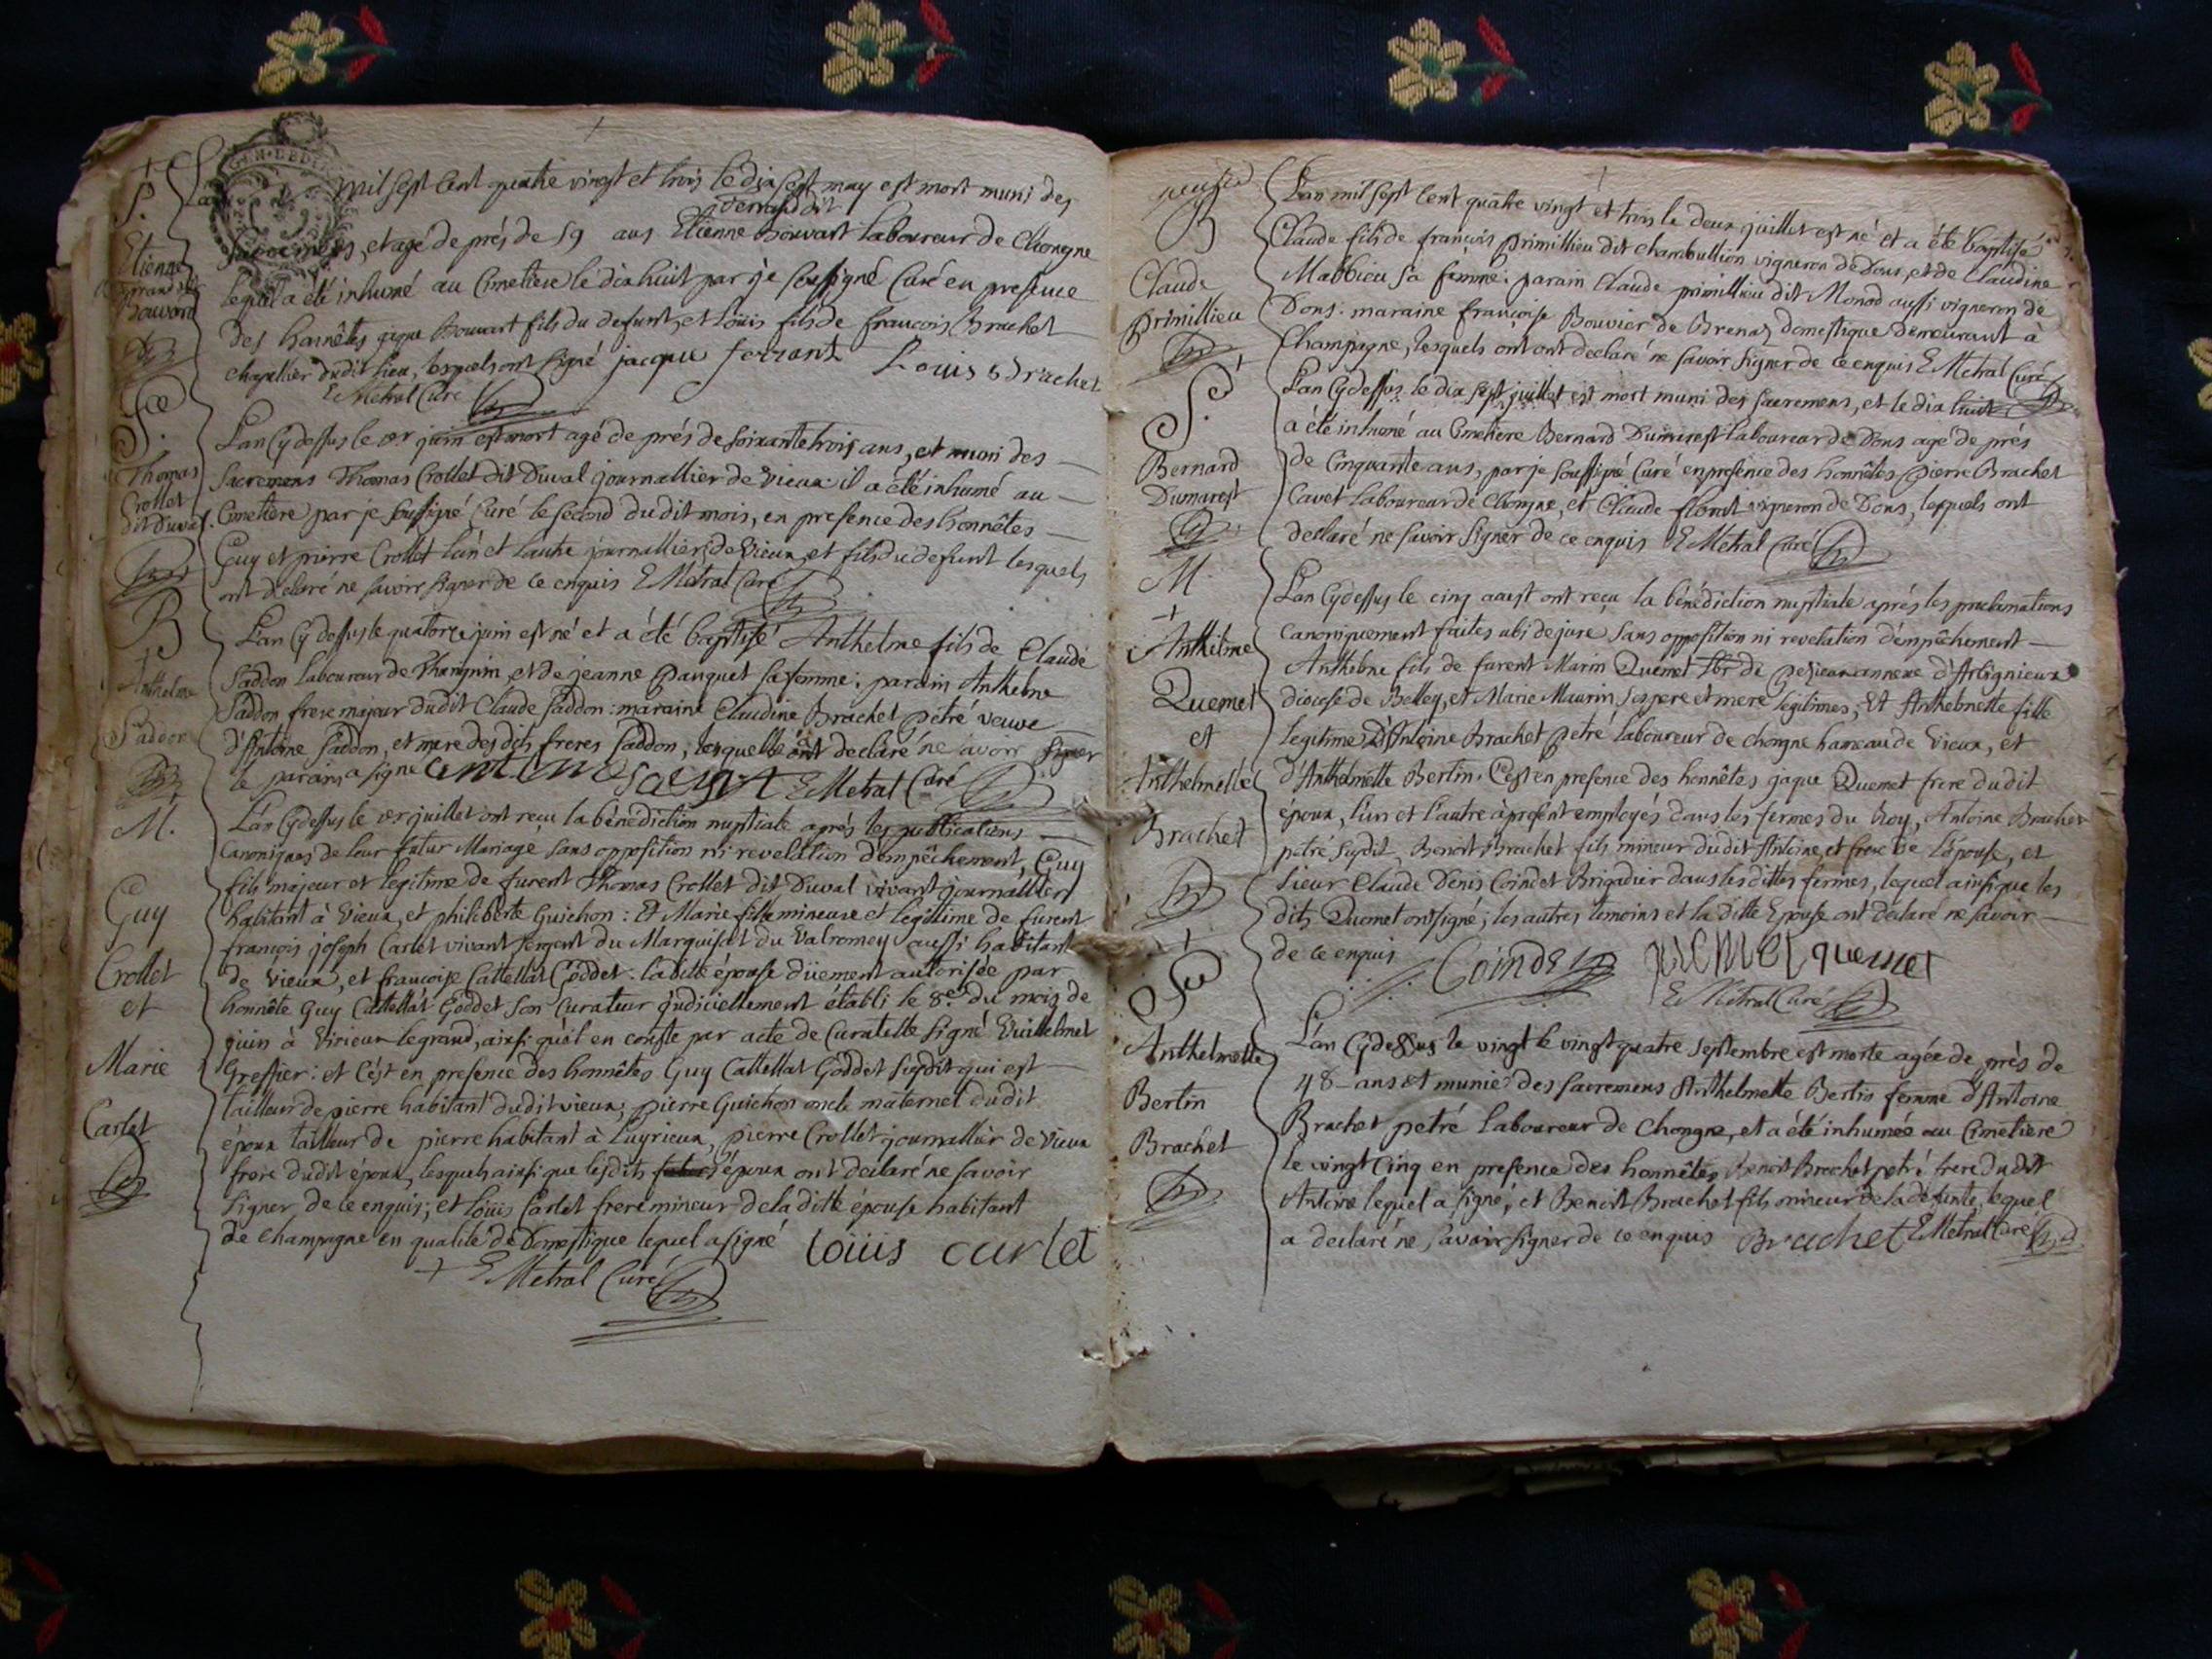 GEN · DEDI
mil sept cent quatre vingt et trois le dix sept may est mort muni des
ferrand dit
sacremens, et agé de prés de 59 ans Etienne Bouvart laboureur de Chongne
lequel a été inhumé au Cimetiere le dix huit par je soussigné Curé en presence
des honnêtes jaque Bouvart fils du defunt, et Loüis fils de francois Brachet
chapellier dudit lieu, lesquels ont signé jacque ferrant Louis Brachet
E Metral Curé
S.
Etienne
ferrand dit
Bouvard
Se
Thomas
Crollet
dit Duval.
L'an Cydessus le 1er juin est mort agé de prés de soixante trois ans, et muni des
sacremens Thomas Crollet dit Duval journallier de Vieux il a été inhumé au
Cimetiere par je soussigné Curé le second dudit mois, en presence des honnêtes
Guy et pierre Crollet l'un et l'autre journalliers de Vieux, et fils du defunt lesquels
ont declaré ne savoir signer de ce enquis E Metral Curé
B
Anthelme
Saddon
L'an Cydessus le quatorze juin est né et a été baptisé Anthelme fils de Claude
Saddon laboureur de et de jeanne Pauquet sa femme; parain Anthelme
Saddon frere majeur dudit Claude Saddon: maraine Claudine Brachet pétré veuve
d'Antoine Saddon, et mere des dits freres Saddon, lesquelle a declaré ne savoir signer
le parain a signé E Metral Curé
M.
Guy
Crollet
et
Marie
Carlet
L'an Cydessus le 1er juillet ont reçu la bénédiction nuptiale aprés les publications
Canoniques de leur futur Mariage sans opposition ni revelation d'empêchement, Guy
fils majeur et legitime de furent Thomas Crollet dit Duval vivant journallier
habitant à Vieux, et philiberte Guichon: Et Marie fille mineure et legitime de furent
françois joseph Carlet vivant sergent du Marquisat du Valromey aussi habitant
de Vieux, et françoise Cattellat Goddet. la ditte épouse düement autorisée par
honnête Guy Cattellat Goddet son Curateur judiciellement établi le 8e du mois de
juin à Virieux le grand, ainsi qu'il en conste par acte de Curatelle signé Vuillelmet
Greffier: et c'est en presence des honnêtes Guy Cattellat Goddet susdit qui est
tailleur de pierre habitant dudit vieux; pierre Guichon oncle maternel dudit
époux tailleur de pierre habitant à Luyrieux, pierre Crollet journallier de Vieux
frere dudit époux, lesquels ainsi que lesdits époux ont declaré ne savoir
signer de ce enquis; et Loüis Carlet frere mineur de la ditte épouse habitant
de Champagne en qualité de Domestique lequel a signé Loüis carlet
E Metral Curé
B
Claude
Primillieu
L'an mil sept cent quatre vingt et trois le deux juillet est né et a été baptisé
Claude fils de françois Primillieu dit Chambullion vigneron de Dons, et de Claudine
Mabbieu sa femme; parain Claude primillieu dit Monod aussi vigneron de
Dons: maraine françoise Bouvier de Brenaz domestique demeurant à
Champagne, lesquels ont ont declaré ne savoir signer de ce enquis E Metral Curé
S.
Bernard
Dumarest
L'an Cydessus le dix sept juillet est mort muni des sacremens, et le dix huit
a été inhumé au Cimetiere Bernard Dumarest laboureur de Dons agé de prés
de Cinquante ans, par je soussigné Curé en presence des honnêtes Pierre Brachet
Cavet laboureur de Chongne, et Claude florat vigneron de Dons, lesquels ont
declaré ne savoir signer de ce enquis E Metral Curé
M.
Anthelme
Quemet
et
Anthelmette
Brachet
L'an Cydessus le cinq aoust ont reçu la bénédiction nuptiale aprés les proclamations
canoniquement faites ubi de jure sans opposition ni revelation d'empêchement
Anthelme fils de furent Marin Quemet de annexe d'Arbignieux
diocese de Belley, et Marie Maurin ses pere et mere legitimes; Et Anthelmette fille
legitime d'Antoine Brachet petré laboureur de chongne hameau de Vieux, et
d'Anthelmette Bertin. C'est en presence des honnêtes jaque Quemet frere dudit
époux, l'un et l'autre à present employés dans les fermes du Roy, Antoine Brachet
petré susdit, Benoit Brachet fils mineur dudit Antoine, et frere de l'épouse, et
sieur Claude Denis Coindet Brigadier dans lesdittes fermes, lequel ainsi que les
dits Quemet ont signé; les autres temoins et la ditte Epouse ont declaré ne savoir
de ce enquis Coindet quemet quemet
E Metral Curé
Se
Anthelmette
Bertin
Brachet
L'an Cydessus le vingt le vingt quatre septembre est morte agée de prés de
48 ans et munie des sacremens Anthelmette Bertin femme d'Antoine
Brachet petré laboureur de Chongne, et a été inhumée au Cimetiere
le vingt cinq en presence des honnêtes Benoit Brachet petré frere dudit
Antoine lequel a signé; et Benoit Brachet fils mineur de la defunte, lequel
a declaré ne savoir signer de ce enquis Brachet E Metral Curé